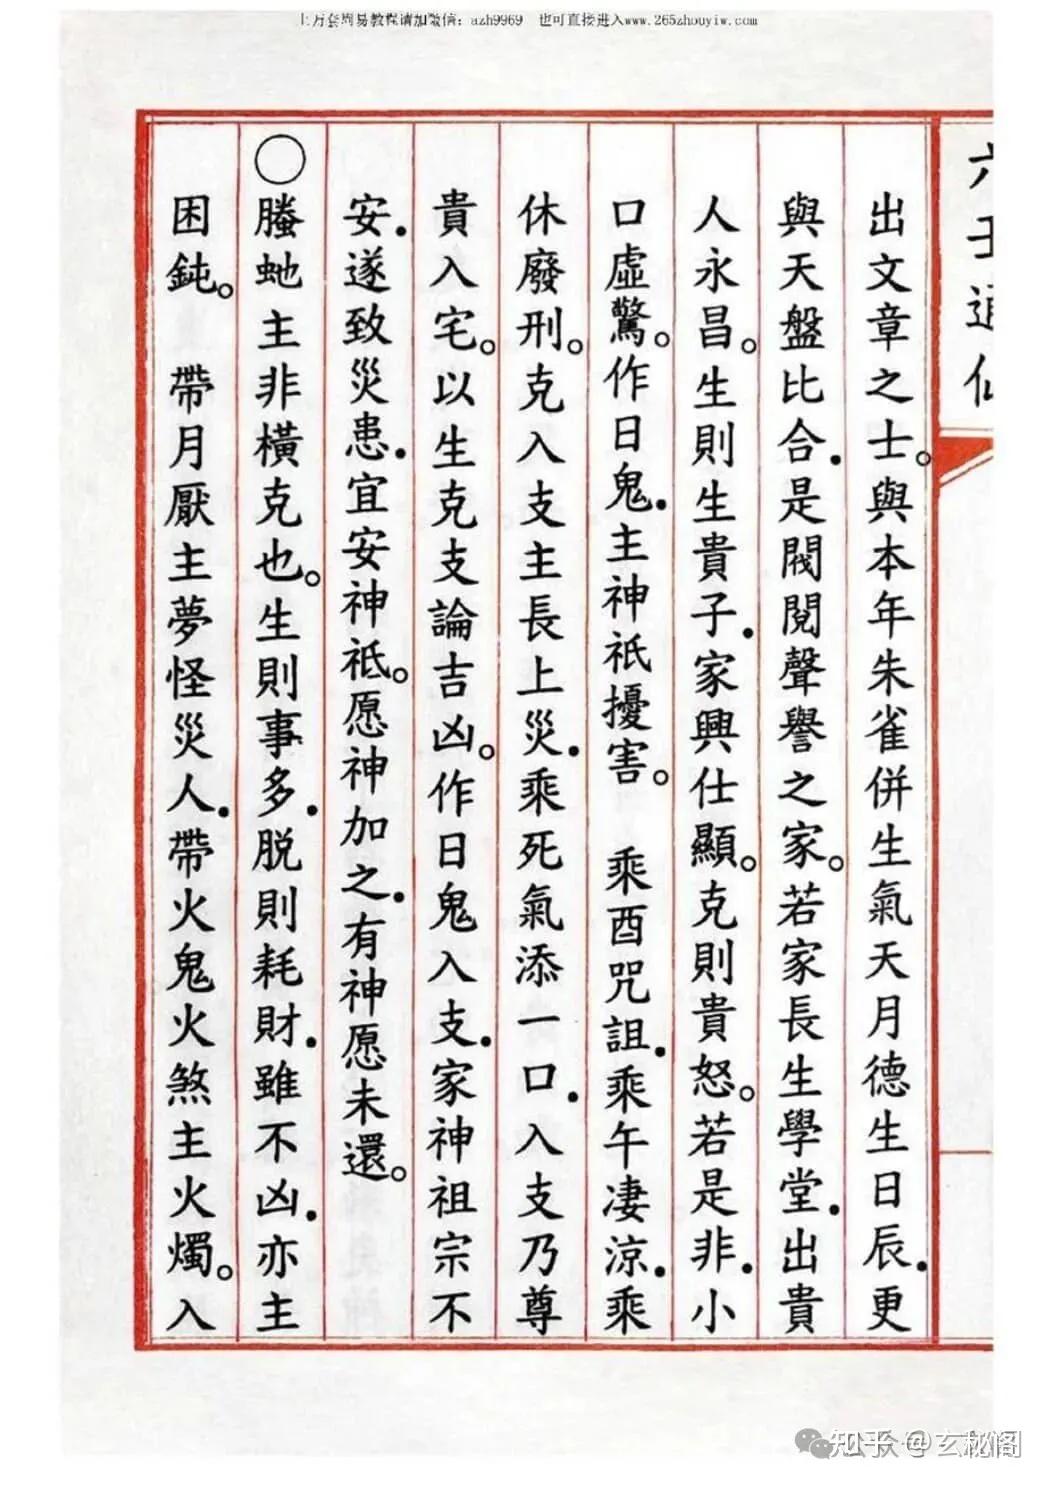 上万套周易教程请加微信：azh9969 也可直接进入www.265zhouyiw.com
六壬通仙
出文章之士。與本年朱雀併生氣天月德生日辰.更
與天盤比合.是閥閱聲譽之家。若家長生學堂.出貴
人永昌。生則生貴子.家興仕顯。克則貴怒。若是非.小
口虛驚。作日鬼.主神祇擾害。 乘酉咒詛.乘午凄涼.乘
休廢刑。克入支主長上災.乘死氣添一口.入支乃尊
貴入宅。以生克支論吉凶。作日鬼入支.家神祖宗不
安.遂致災患.宜安神祇。愿神加之.有神愿未還。
○螣虵主非橫克也。生則事多.脱則耗財.雖不凶.亦主
困鈍。 帶月厭主夢怪災人.帶火鬼火煞主火燭。入
知乎 @玄秘阁